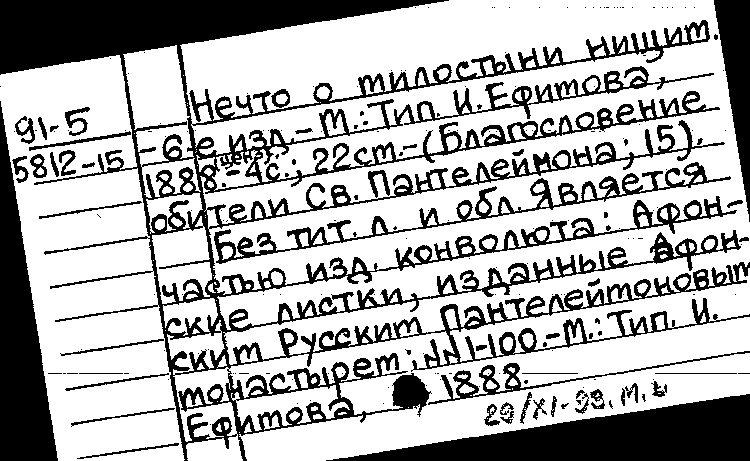 Нечто о милостыни нищим.
91-5
5812-15
-6-е изд.-М.: Тип. И.Ефимова,
(ценз).
1888.-4с.; 22см.-(Благословение
обители Св. Пантелеймона; 15).
Без тит. л. и обл. Является
частью изд. конволюта: Афон-
ские листки, изданные Афон-
ским Русским Пантелеймоновым
монастырем; NN1-100.-М.: Тип. И.
Ефимова, 1888.
29/XI-93.